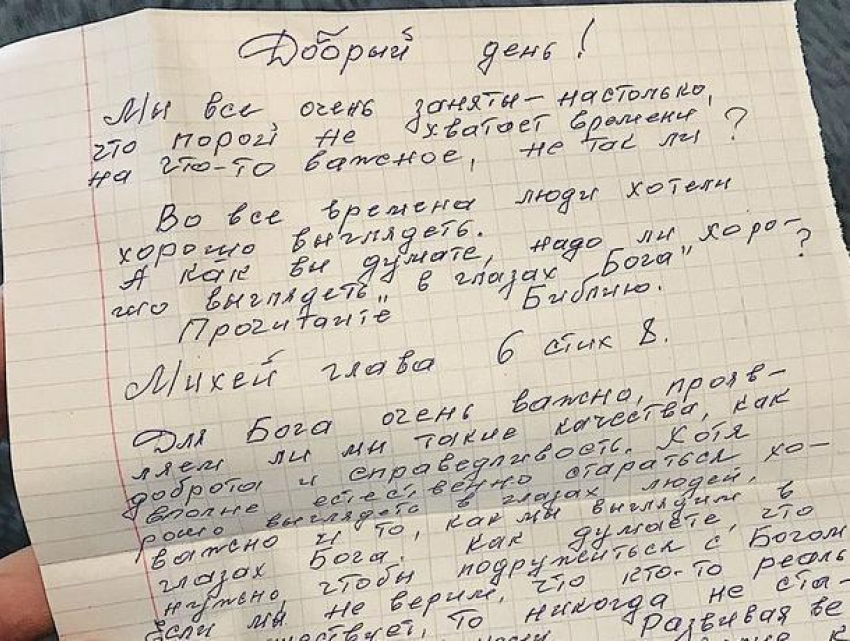 Добрый день!
Мы все очень заняты – настолько,
что порой не хватает времени
на что-то важное, не так ли?
Во все времена люди хотели
хорошо выглядеть.
А как вы думаете, надо ли „хоро-
шо выглядеть" в глазах Бога?
Прочитайте Библию.
Михей глава 6 стих 8.
Для Бога очень важно, прояв-
ляем ли мы такие качества, как
доброта и справедливость. Хотя
вполне естественно стараться хо-
рошо выглядеть в глазах людей,
важно и то, как мы выглядим в
глазах Бога. Как думаете, что
нужно, чтобы подружиться с Богом
Если мы не верим, что кто-то реаль
то никогда не ста-
Развивая ве